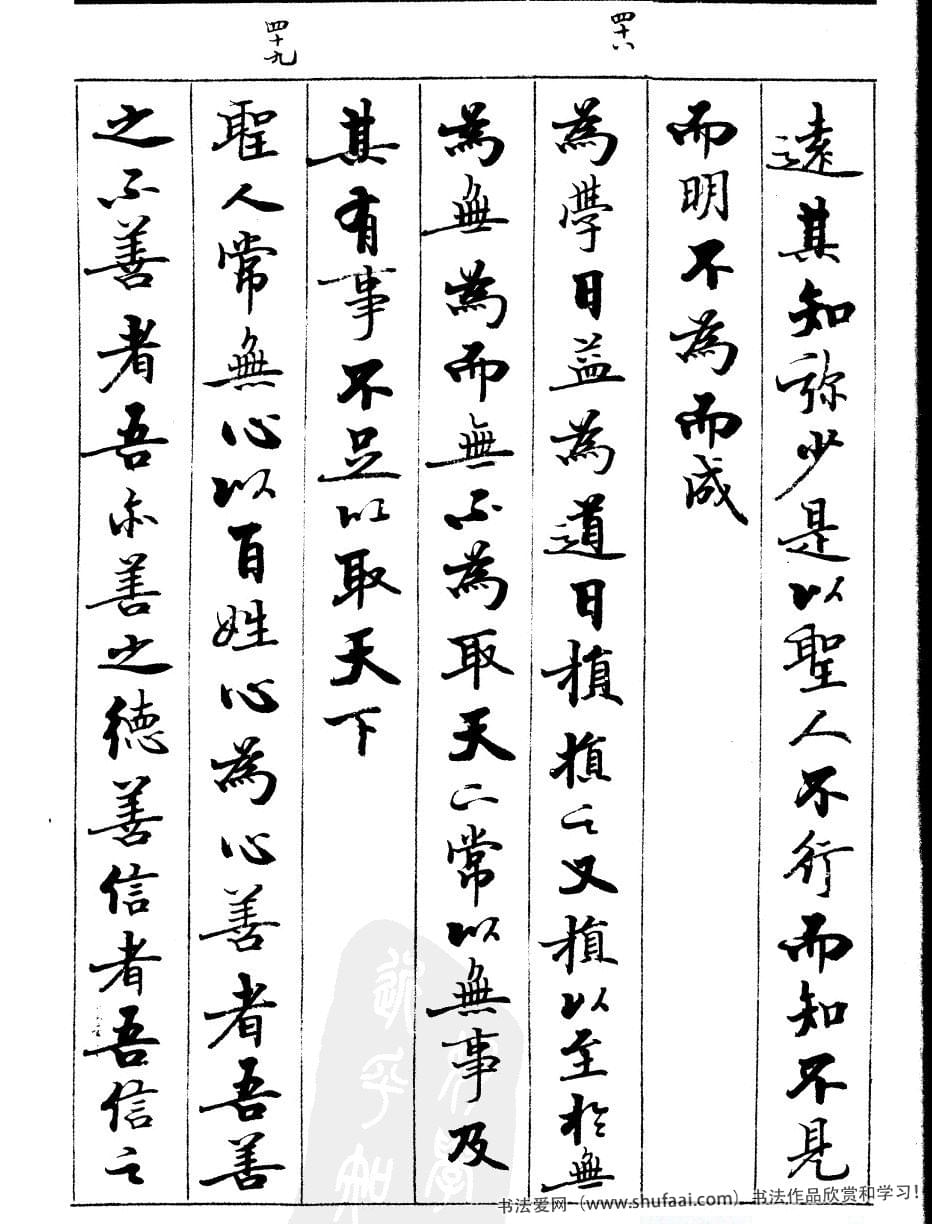 四十八
四十九
遠其知弥少是以聖人不行而知不見
而明不為而成
為學日益為道日損損之又損以至於無
為無為而無不為取天下常以無事及
其有事不足以取天下
聖人常無心以百姓心為心善者吾善
之不善者吾亦善之德善信者吾信之
书法爱网（www.shufaai.com）书法作品欣赏和学习！